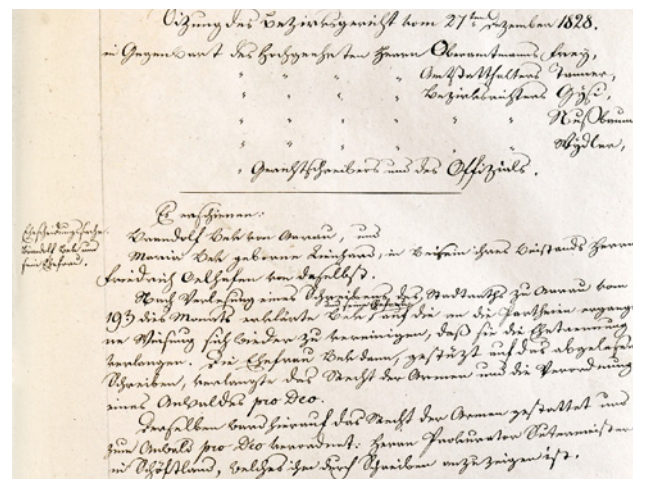 Sitzung des Bezirksgericht vom 27ten Dezember 1828.
in Gegenwart des Hochgeehrten Herrn Oberamtmanns Frey,
" " " " Amtsstatthalters Tanner,
" " " " Bezirksrichters Gysi,
" " " " " Nußbaum
" " " " " Wydler,
" Gerichtschreibers und des Offizials.
Ehescheidungssache
Beck und
seine Ehefrau.
Erschienen:
Beck von Aarau, und
Maria Beck geborne Reinhard, in Beisein ihres Beistands Herrn
Friedrich Oelhafen von daselbst.
Nach Verlesung eines Schreibens des Stadtraths zu Aarau vom
und seine Ehefrau
19t dies Monats erklärte Beck, auf die an die Partheien ergange
ne Weisung sich wieder zu vereinigen, daß sie die Ehetrennung
verlangen. Die Ehefrau Beck dann, gestützt auf das abgelesene
Schreiben, verlangte das Recht der Armen und die Verordnung
eines Anwaldes pro Deo.
Derselben ward hierauf das Recht der Armen gestattet und
zum Anwald pro Deo verordnet: Herrn Prokurator Sutermeister
in Schöftland, welches ihm durch Schreiben anzuzeigen ist.